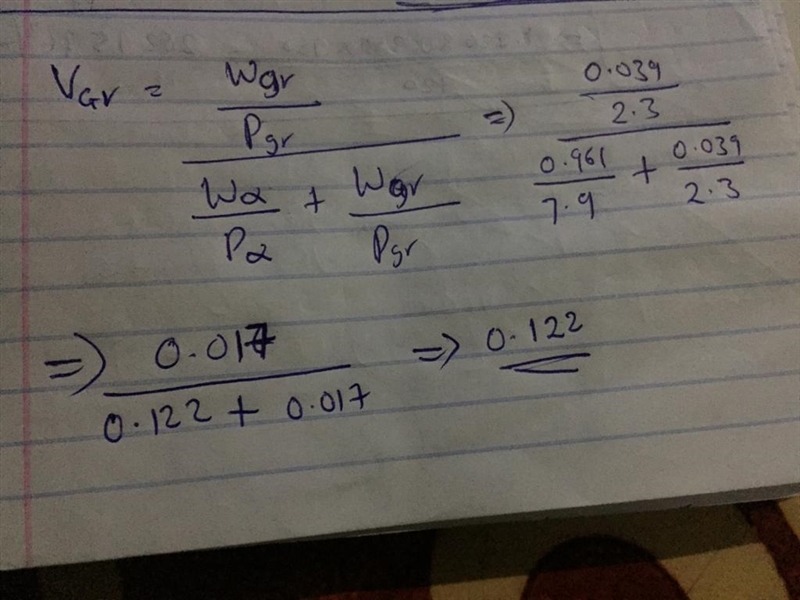 V_Gr = (W_gr / P_gr) / (W_α / P_α + W_gr / P_gr) => (0.039 / 2.3) / (0.961 / 7.9 + 0.039 / 2.3)
=> 0.017 / (0.122 + 0.017) => 0.122